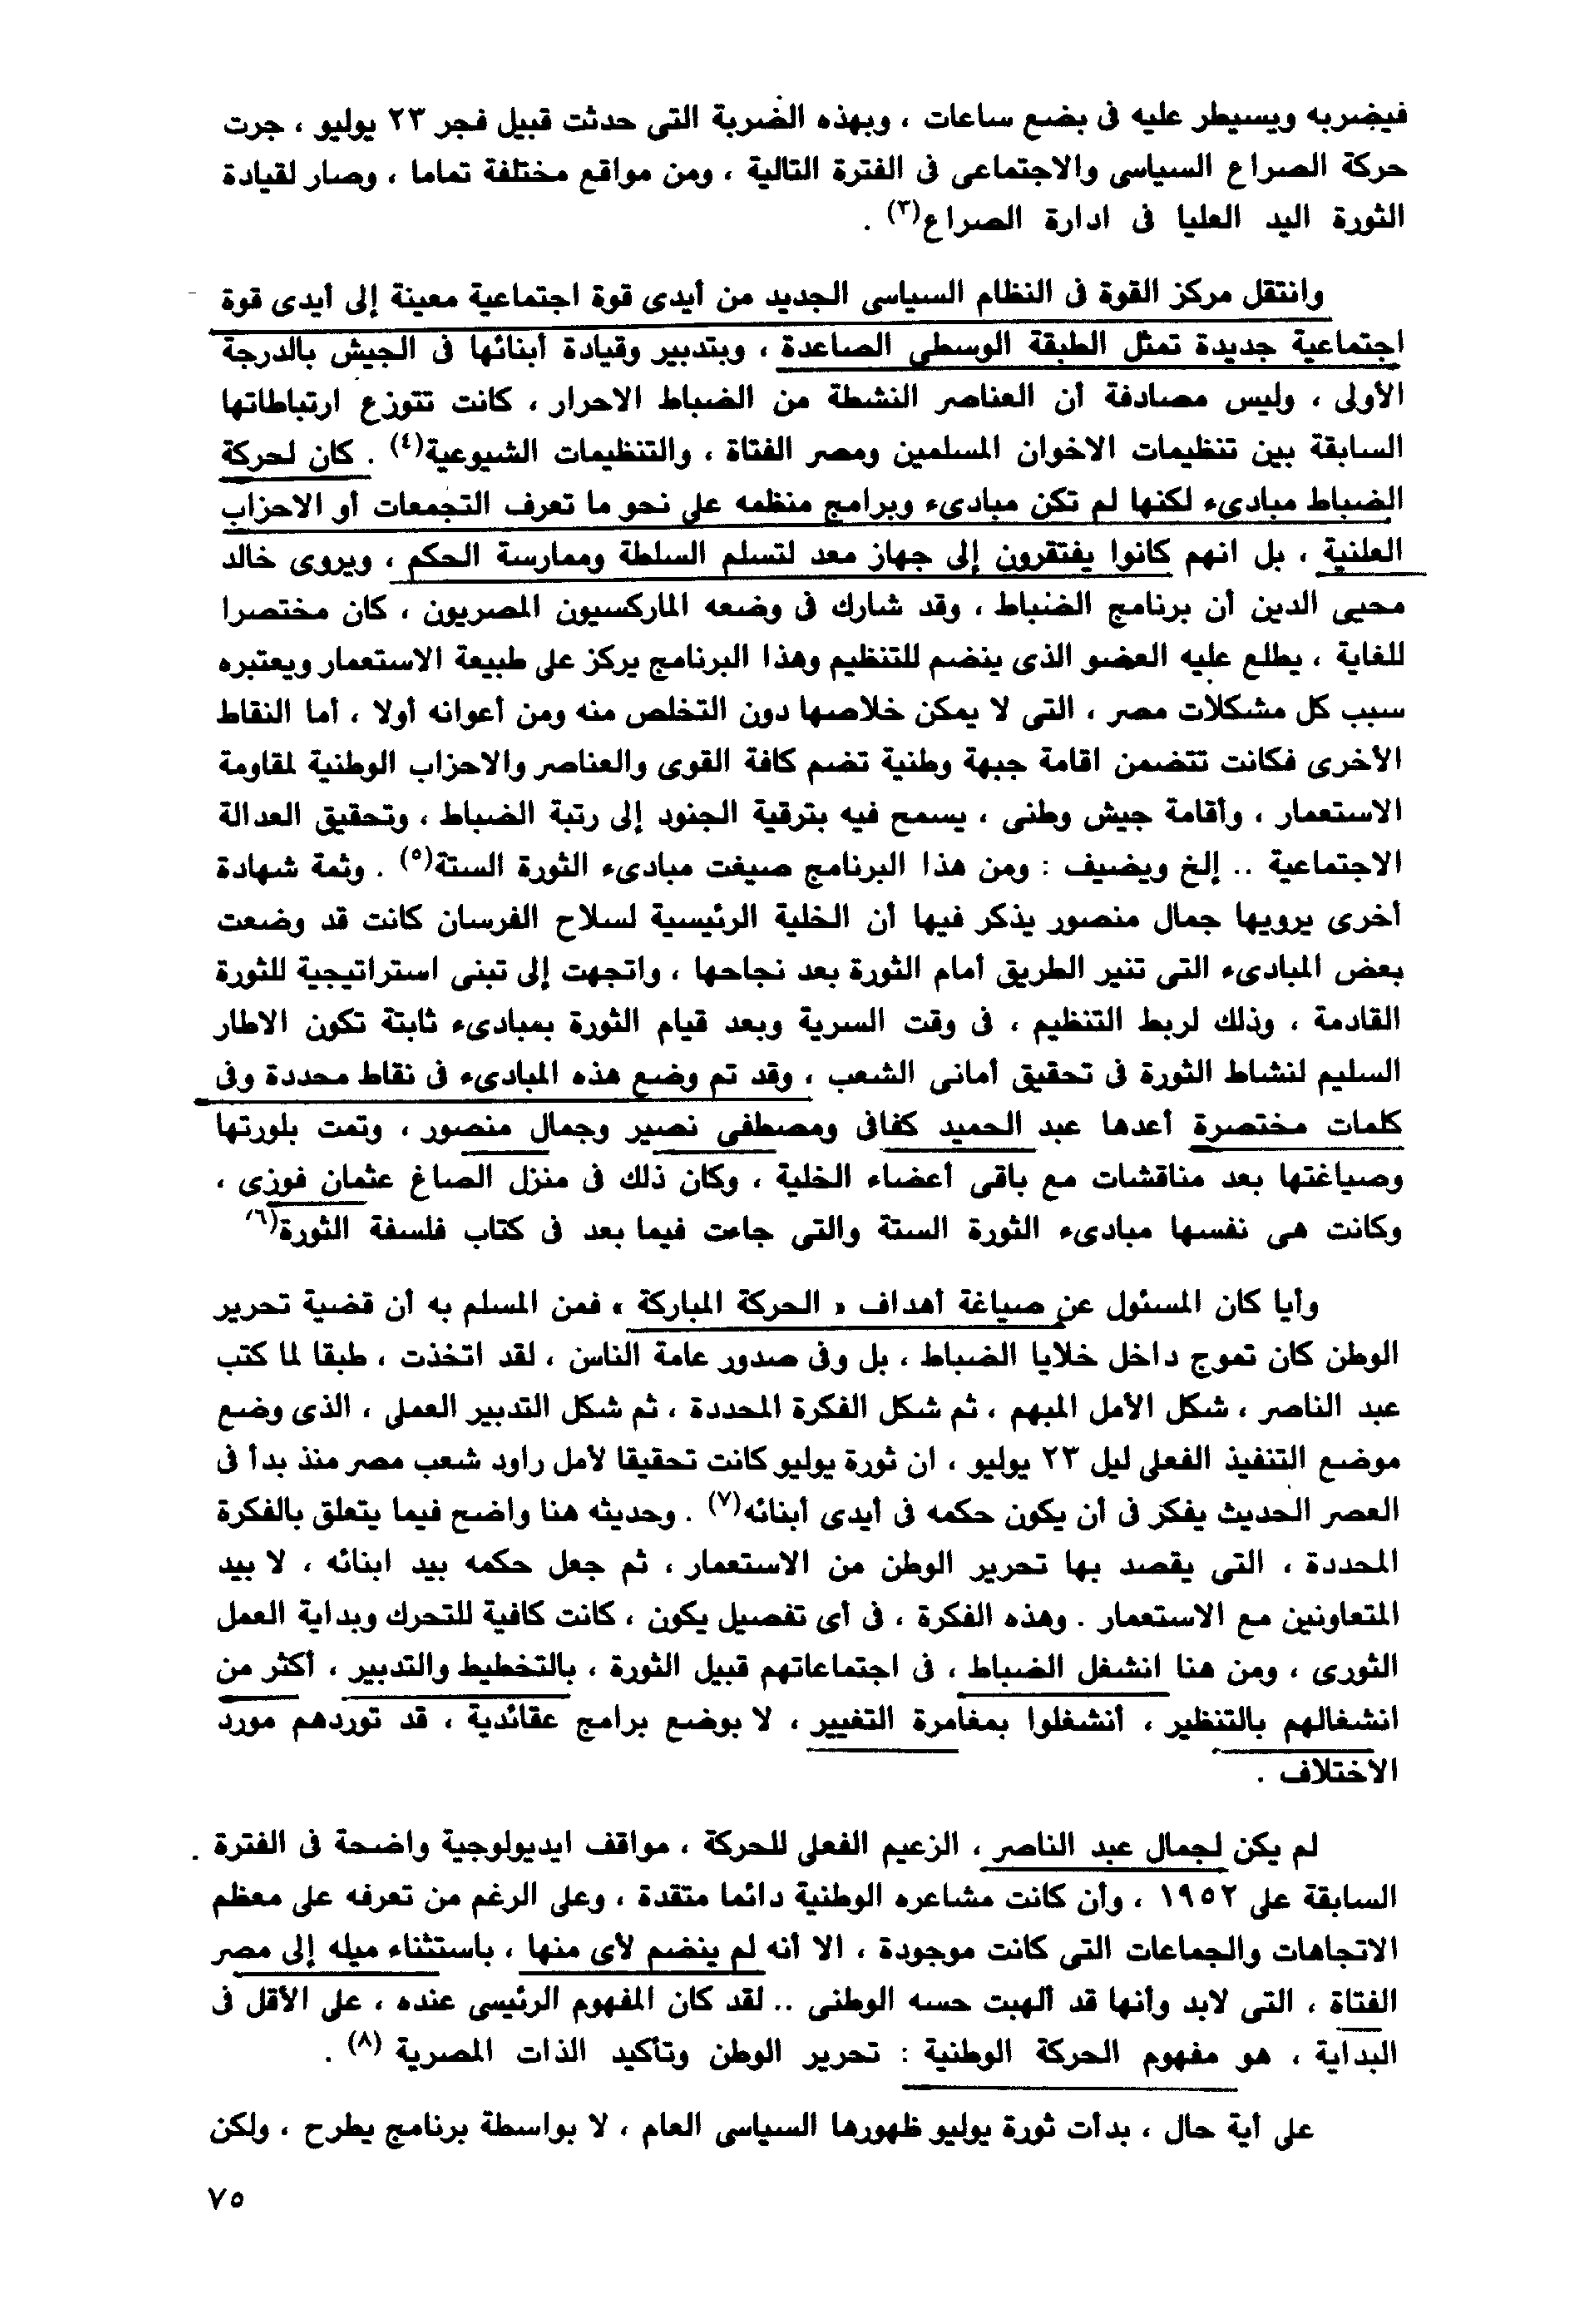 فيضربه ويسيطر عليه فى بضع ساعات ، وبهذه الضربة التى حدثت قبيل فجر ٢٣ يوليو ، جرت
حركة الصراع السياسى والاجتماعى فى الفترة التالية ، ومن مواقع مختلفة تماما ، وصار لقيادة
الثورة اليد العليا فى ادارة الصراع(٣) .
وانتقل مركز القوة فى النظام السياسى الجديد من أيدى قوة اجتماعية معينة إلى أيدى قوة
اجتماعية جديدة تمثل الطبقة الوسطى الصاعدة ، وبتدبير وقيادة أبنائها فى الجيش بالدرجة
الأولى ، وليس مصادفة أن العناصر النشطة من الضباط الاحرار ، كانت تتوزع ارتباطاتها
السابقة بين تنظيمات الاخوان المسلمين ومصر الفتاة ، والتنظيمات الشيوعية(٤) . كان لحركة
الضباط مبادىء لكنها لم تكن مبادىء وبرامج منظمه على نحو ما تعرف التجمعات أو الاحزاب
العلنية ، بل انهم كانوا يفتقرون إلى جهاز معد لتسلم السلطة وممارسة الحكم ، ويروى خالد
محيى الدين أن برنامج الضباط ، وقد شارك فى وضعه الماركسيون المصريون ، كان مختصرا
للغاية ، يطلع عليه العضو الذى ينضم للتنظيم وهذا البرنامج يركز على طبيعة الاستعمار ويعتبره
سبب كل مشكلات مصر ، التى لا يمكن خلاصها دون التخلص منه ومن أعوانه أولا ، أما النقاط
الأخرى فكانت تتضمن اقامة جبهة وطنية تضم كافة القوى والعناصر والاحزاب الوطنية لمقاومة
الاستعمار ، وأقامة جيش وطنى ، يسمح فيه بترقية الجنود إلى رتبة الضباط ، وتحقيق العدالة
الاجتماعية .. إلخ ويضيف : ومن هذا البرنامج صيغت مبادىء الثورة الستة(٥) . وثمة شهادة
أخرى يرويها جمال منصور يذكر فيها أن الخلية الرئيسية لسلاح الفرسان كانت قد وضعت
بعض المبادىء التى تنير الطريق أمام الثورة بعد نجاحها ، واتجهت إلى تبنى استراتيجية للثورة
القادمة ، وذلك لربط التنظيم ، فى وقت السرية وبعد قيام الثورة بمبادىء ثابتة تكون الاطار
السليم لنشاط الثورة فى تحقيق أمانى الشعب ، وقد تم وضع هذه المبادىء فى نقاط محددة وفى
كلمات مختصرة أعدها عبد الحميد كفافى ومصطفى نصير وجمال منصور ، وتمت بلورتها
وصياغتها بعد مناقشات مع باقى أعضاء الخلية ، وكان ذلك فى منزل الصاغ عثمان فوزى ،
وكانت هى نفسها مبادىء الثورة الستة والتى جاءت فيما بعد فى كتاب فلسفة الثورة(٦)
وأيا كان المسئول عن صياغة أهداف « الحركة المباركة » فمن المسلم به أن قضية تحرير
الوطن كان تموج داخل خلايا الضباط ، بل وفى صدور عامة الناس ، لقد اتخذت ، طبقا لما كتب
عبد الناصر ، شكل الأمل المبهم ، ثم شكل الفكرة المحددة ، ثم شكل التدبير العملى ، الذى وضع
موضع التنفيذ الفعلى ليل ٢٣ يوليو ، ان ثورة يوليو كانت تحقيقا لأمل راود شعب مصر منذ بدأ فى
العصر الحديث يفكر فى أن يكون حكمه فى أيدى أبنائه(٧) . وحديثه هنا واضح فيما يتعلق بالفكرة
المحددة ، التى يقصد بها تحرير الوطن من الاستعمار ، ثم جعل حكمه بيد ابنائه ، لا بيد
المتعاونين مع الاستعمار . وهذه الفكرة ، فى أى تفصيل يكون ، كانت كافية للتحرك وبداية العمل
الثورى ، ومن هنا انشغل الضباط ، فى اجتماعاتهم قبيل الثورة ، بالتخطيط والتدبير ، أكثر من
انشغالهم بالتنظير ، أنشغلوا بمغامرة التغيير ، لا بوضع برامج عقائدية ، قد توردهم مورد
الاختلاف .
لم يكن لجمال عبد الناصر ، الزعيم الفعلى للحركة ، مواقف ايديولوجية واضحة فى الفترة
السابقة على ١٩٥٢ ، وأن كانت مشاعره الوطنية دائما متقدة ، وعلى الرغم من تعرفه على معظم
الاتجاهات والجماعات التى كانت موجودة ، الا أنه لم ينضم لأى منها ، باستثناء ميله إلى مصر
الفتاة ، التى لابد وأنها قد ألهبت حسه الوطنى .. لقد كان المفهوم الرئيسى عنده ، على الأقل فى
البداية ، هو مفهوم الحركة الوطنية : تحرير الوطن وتأكيد الذات المصرية (٨) .
على أية حال ، بدأت ثورة يوليو ظهورها السياسى العام ، لا بواسطة برنامج يطرح ، ولكن
٧٥